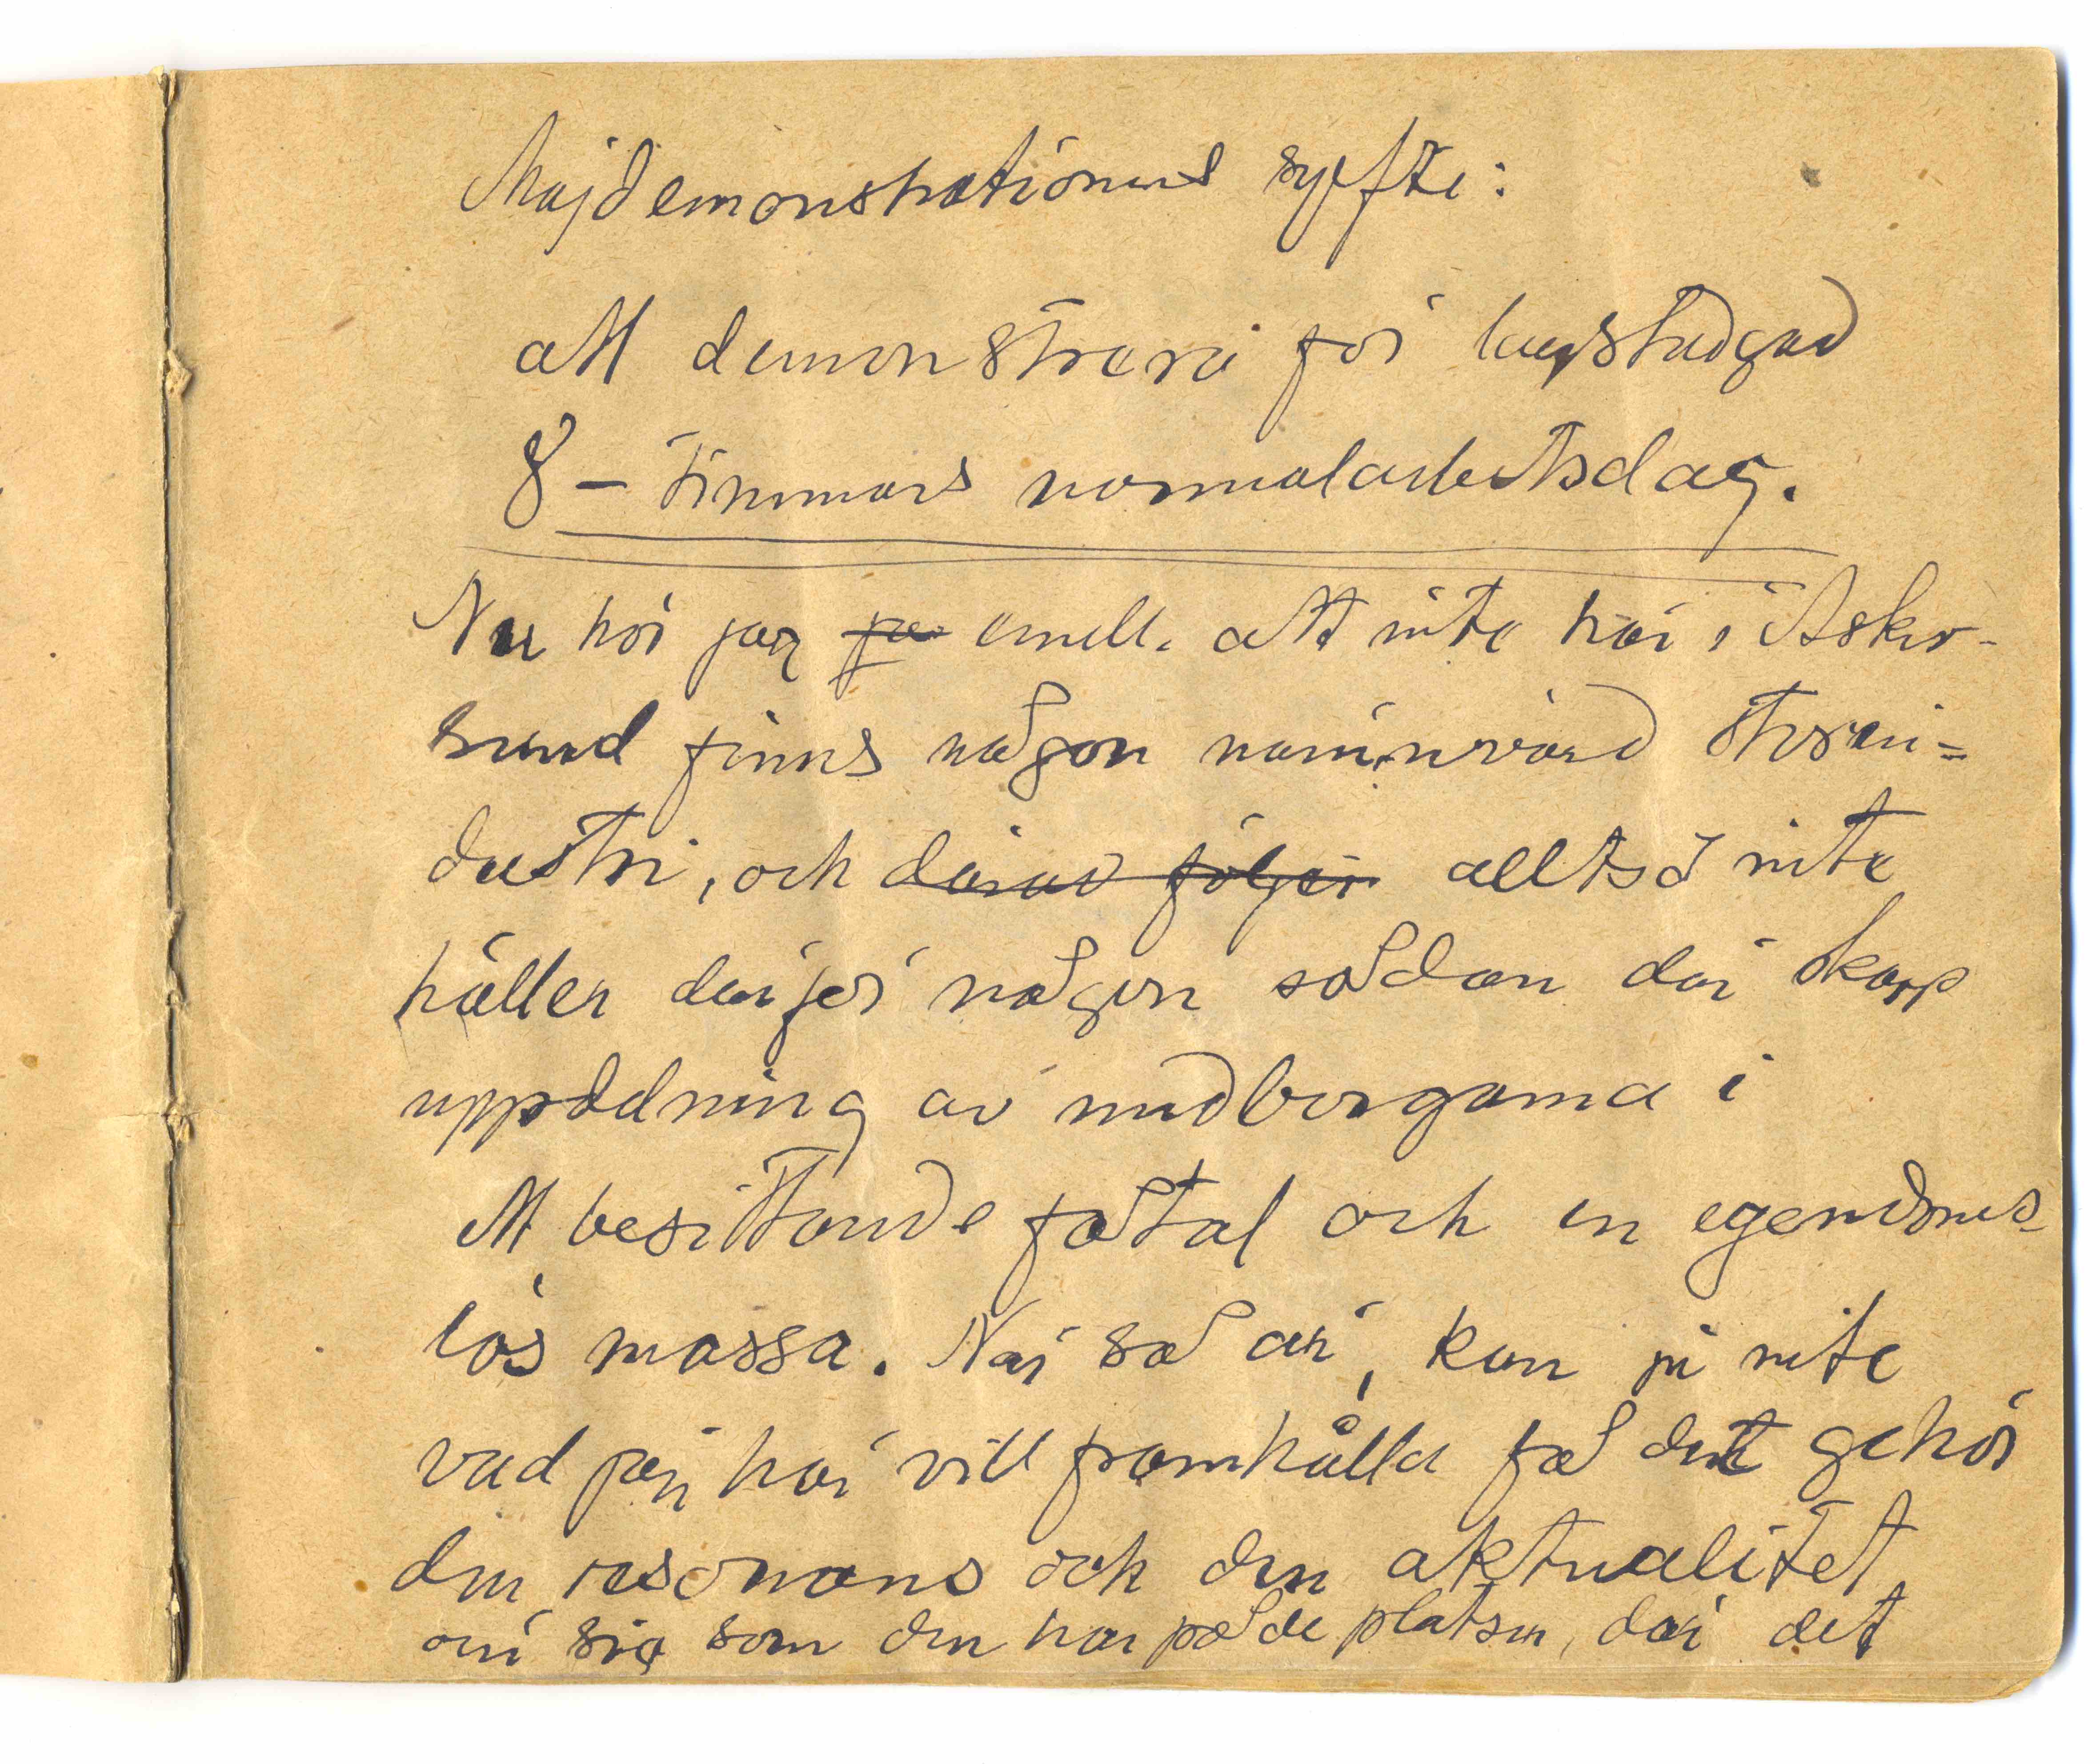 Majdemonstrationens syfte:
att demonstrera för lagstadgad
8 – timmars normalarbetsdag.
Nu hör jag emell. att inte här i Asker-
sund finns någon nämnvärd storin=
dustri, och därav följer alltså inte
håller därför någon sådan där skarp
uppdelning av medborgarna i
ett besittande fåtal och en egendoms-
lös massa. När så är, kan ju inte
vad jag här vill framhålla få det gehör
den resonans och den aktualitet
om sig som den har på de platser, där det